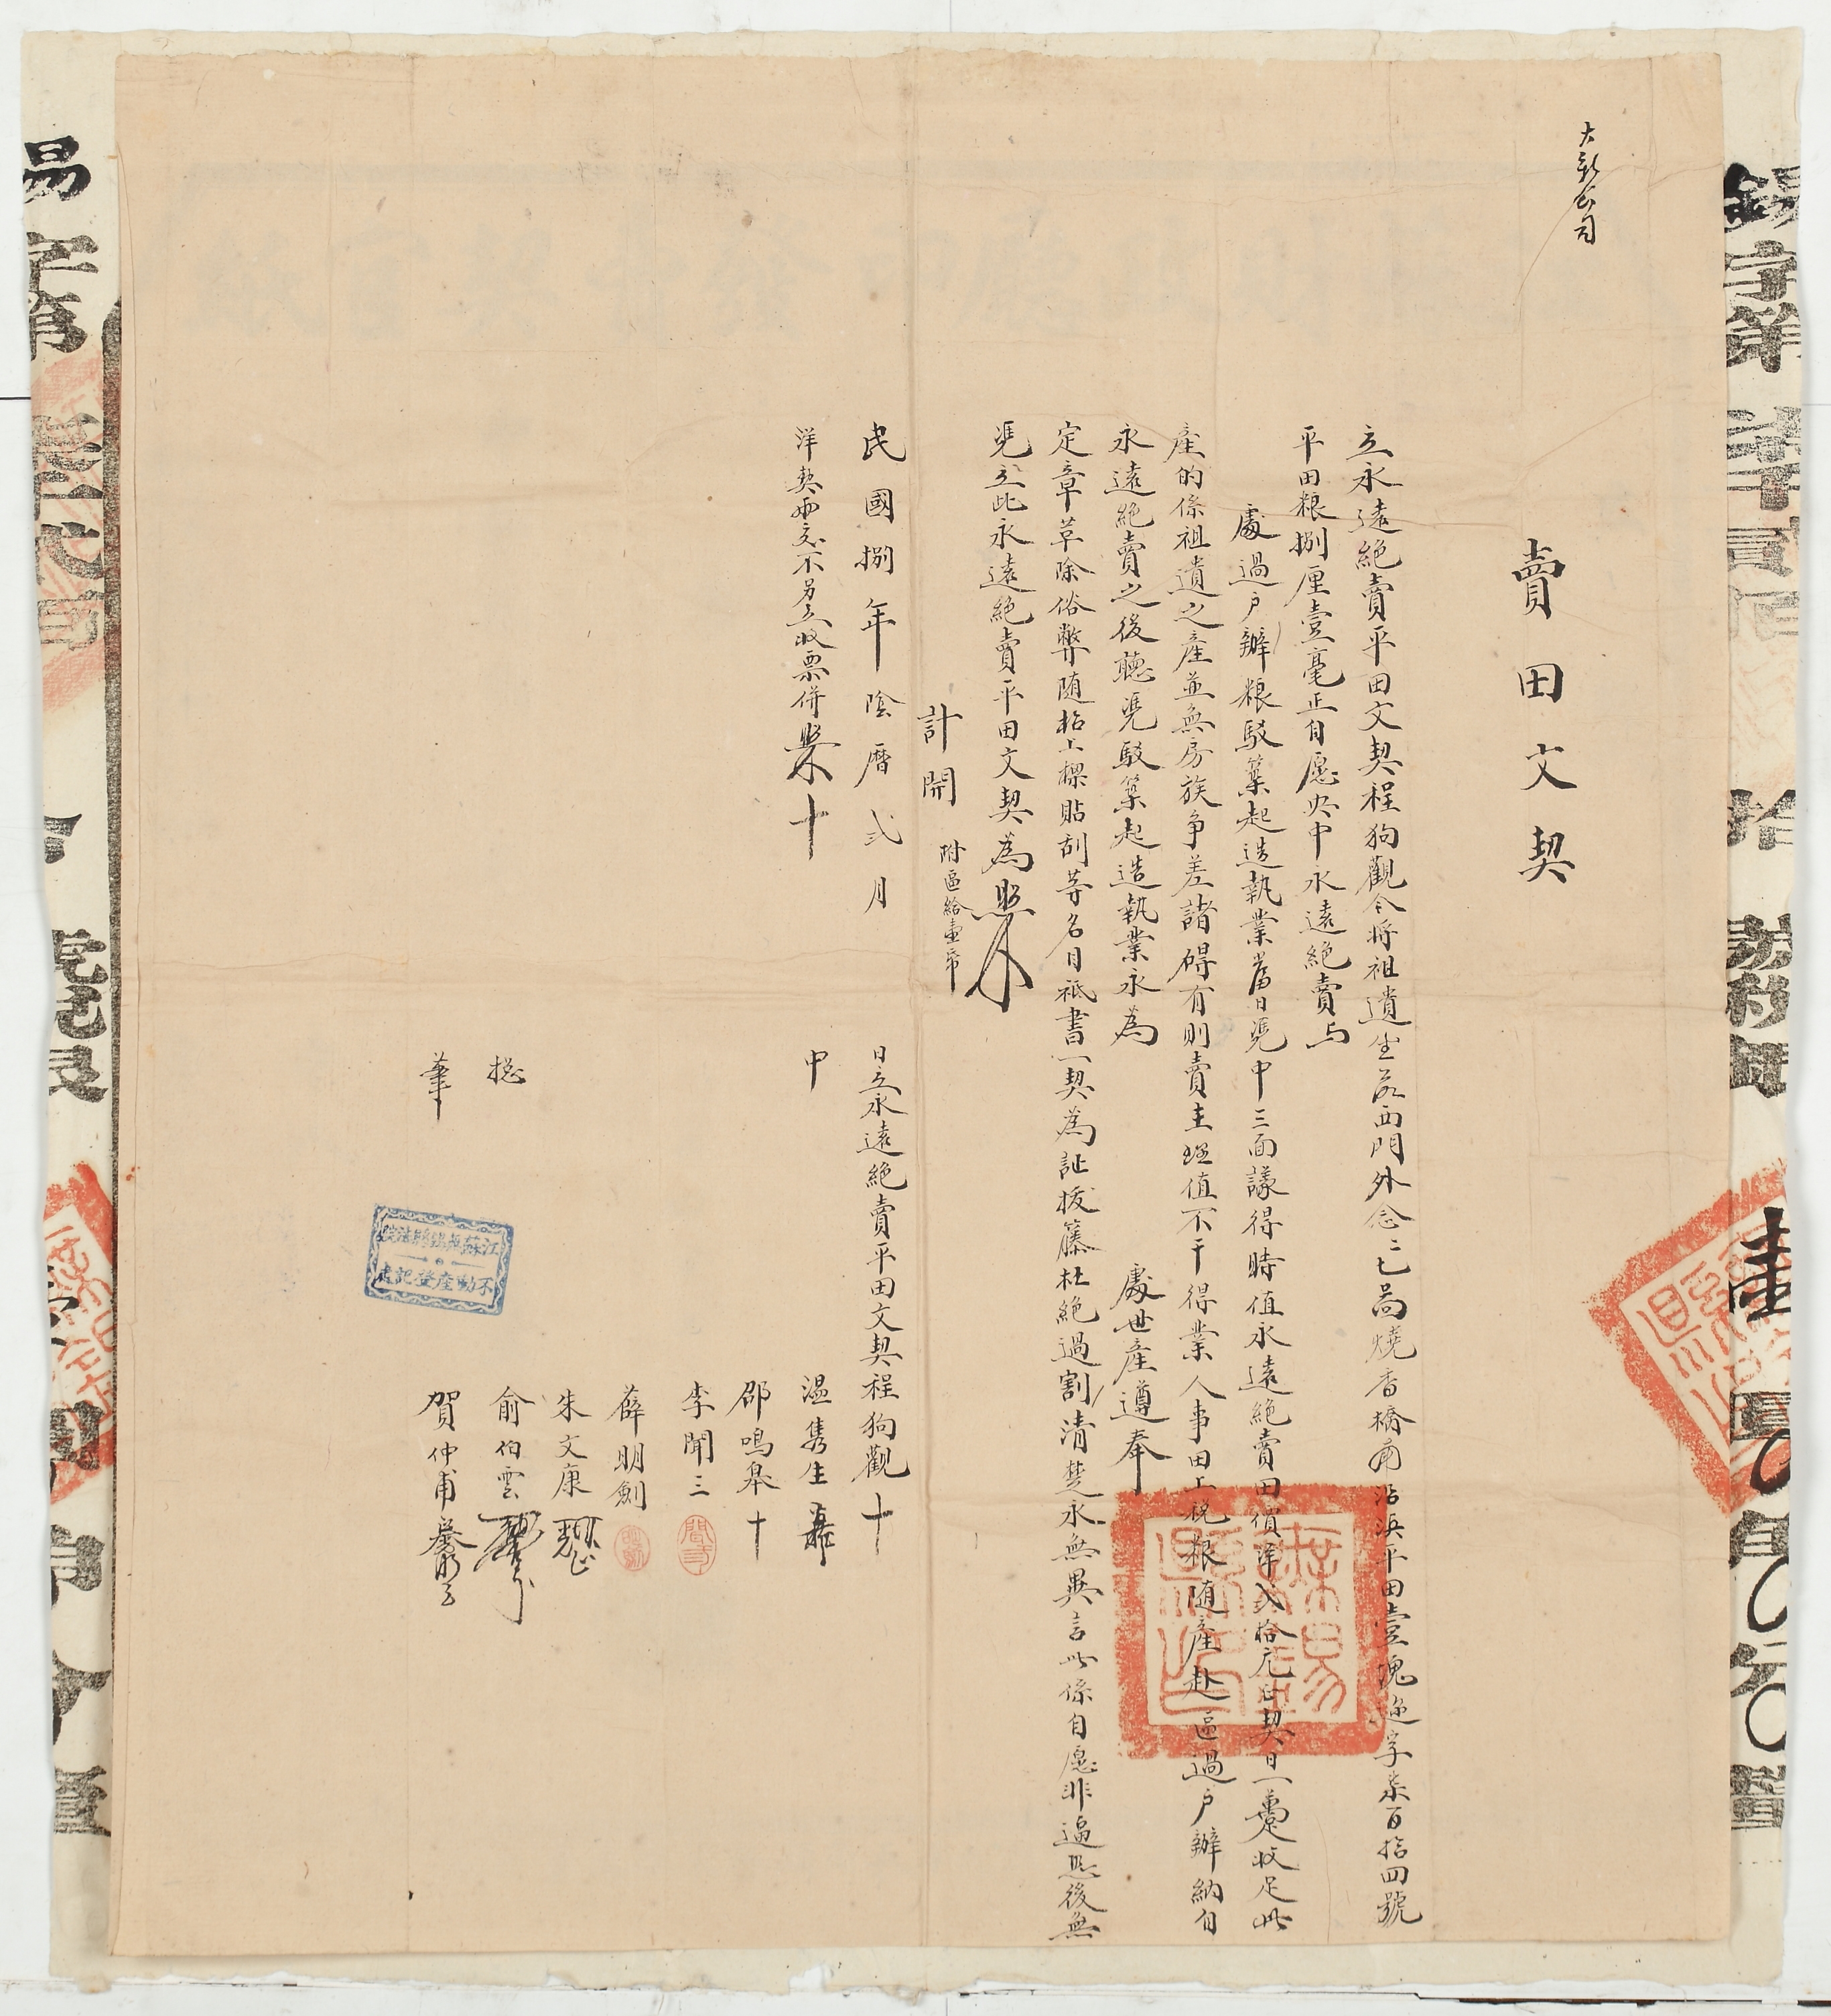 大新公司
賣田文契
立永遠絕賣平田文契程狗觀今將祖遺坐落西門外念二七啚燒香橋南沿浜平田壹塊遜字柒百拾四號
平田粮捌厘壹毫正自愿央中永遠絕賣与
處過户辦粮駁築起造執業當日凴中三面議得時值永遠絕賣田價洋弍拾元正契日一躉收足此
產的係祖遺之產並無房族爭差諸碍有則賣主理值不干得業人事田上稅粮随產赴區過户辦納自
永遠絕賣之後聽凴駁築起造執業永為
處世產遵奉
定章革除俗弊随抬上椂貼刮等名目祇書一契為証拔籐杜絕過割清楚永無異言此係自愿非逼恐後無
凴立此永遠絕賣平田文契為照
計開 附區給壹帋
民國捌年陰曆弍月
日立永遠絕賣平田文契程狗觀十
洋契兩交不另立收票併照十
中
温雋生
邵鳴皋十
李聞三
薛明劍
朱文康
總
俞伯雲
筆
賀仲甫
江蘇無錫縣法院
不動產登記處
無錫縣印